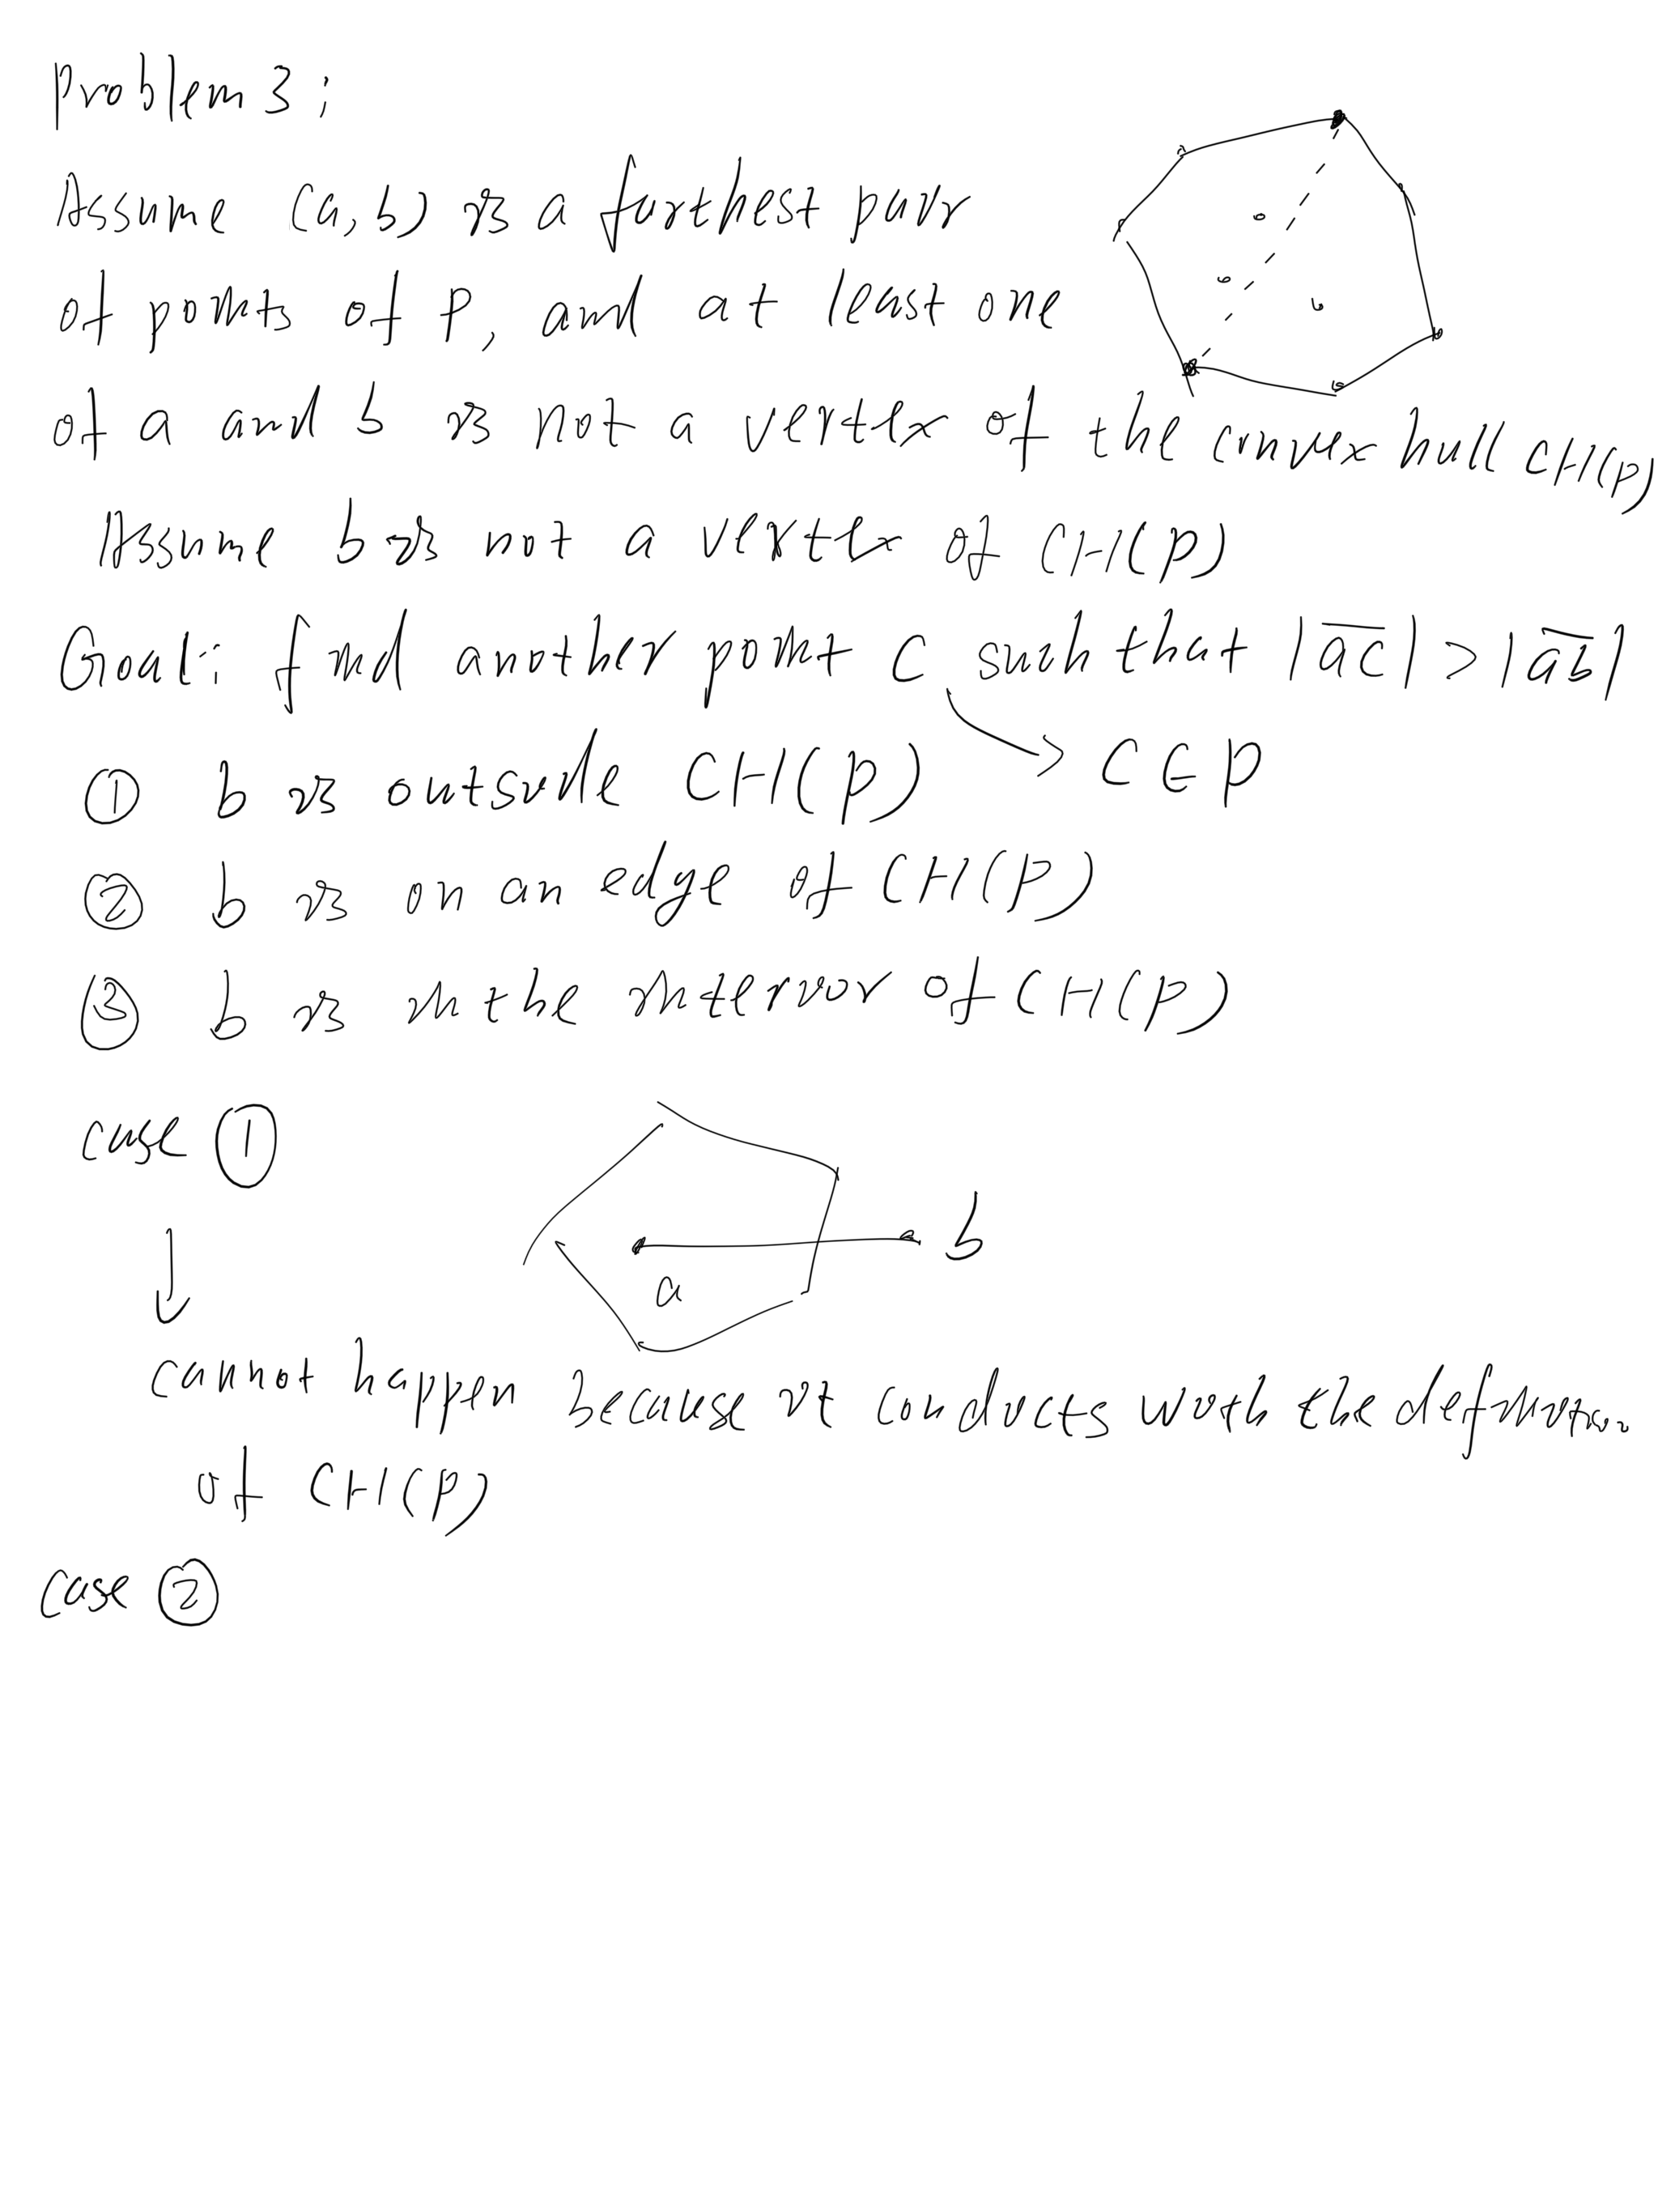 Problem 3:
Assume (a, b) is a furthest pair
of points of P, and at least one
of a and b is not a vertex of the convex hull CH(P)
Assume b is not a vertex of CH(P)
Goal: find another point c such that |ac| > |ab|
→ c ∈ P
① b is outside CH(P)
② b is on an edge of CH(P)
③ b is in the interior of CH(P)
case ①
a
b
↓
cannot happen because it conducts with the definition
of CH(P)
case ②